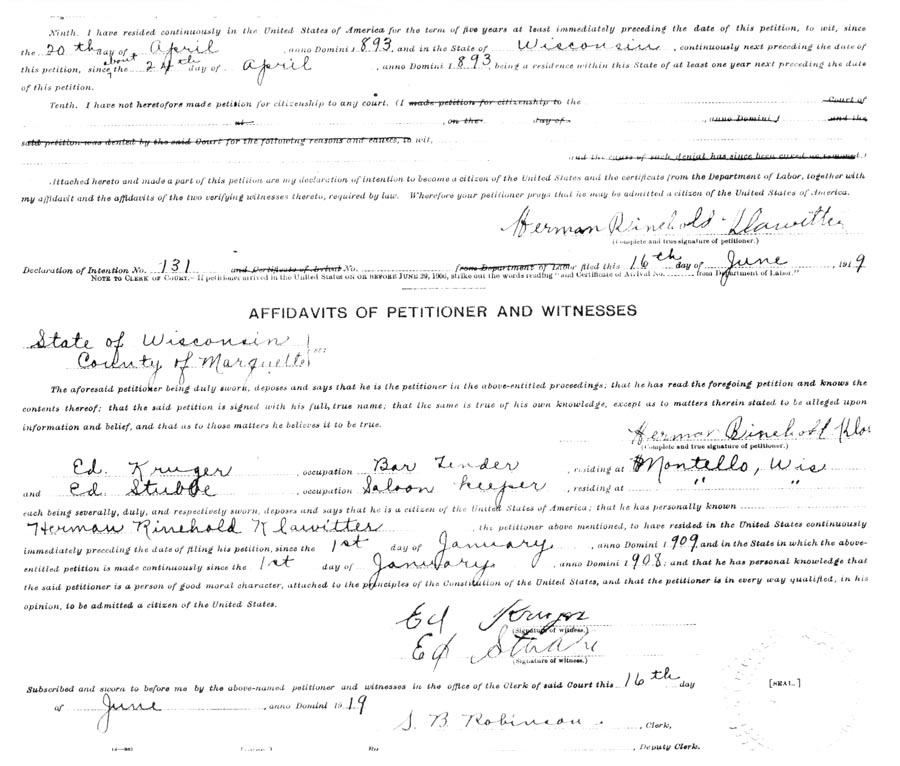 Ninth. I have resided continuously in the United States of America for the term of five years at least immediately preceding the date of this petition, to wit, since
the 20th day of April, anno Domini 1893, and in the State of Wisconsin, continuously next preceding the date of
this petition, since about the 24th day of April, anno Domini 1893, being a residence within this State of at least one year next preceding the date
of this petition.
Tenth. I have not heretofore made petition for citizenship to any court. (I made petition for citizenship to the Court of
at, on the day of, anno Domini 1 and the
said petition was denied by the said Court for the following reasons and causes, to wit,
and the cause of such denial has since been cured or removed.)
Attached hereto and made a part of this petition are my declaration of intention to become a citizen of the United States and the certificate from the Department of Labor, together with
my affidavit and the affidavits of the two verifying witnesses thereto, required by law. Wherefore your petitioner prays that he may be admitted a citizen of the United States of America.
Herman Rinehold Klawitter
(Complete and true signature of petitioner.)
Declaration of Intention No. 131 and Certificate of Arrival No. from Department of Labor filed this 16th day of June, 1919
NOTE TO CLERK OF COURT.—If petitioner arrived in the United States ON OR BEFORE JUNE 29, 1906, strike out the words reading "and Certificate of Arrival No. from Department of Labor."
AFFIDAVITS OF PETITIONER AND WITNESSES
State of Wisconsin
County of Marquette ss:
The aforesaid petitioner being duly sworn, deposes and says that he is the petitioner in the above-entitled proceedings; that he has read the foregoing petition and knows the
contents thereof; that the said petition is signed with his full, true name; that the same is true of his own knowledge, except as to matters therein stated to be alleged upon
information and belief, and that as to those matters he believes it to be true.
Herman Rinehold Kla
(Complete and true signature of petitioner.)
Ed. Kruger, occupation Bar Tender, residing at Montello, Wis
and Ed Stubbe, occupation Saloon Keeper, residing at " "
each being severally, duly, and respectively sworn, deposes and says that he is a citizen of the United States of America; that he has personally known
Herman Rinehold Klawitter, the petitioner above mentioned, to have resided in the United States continuously
immediately preceding the date of filing his petition, since the 1st day of January, anno Domini 1909, and in the State in which the above-
entitled petition is made continuously since the 1st day of January, anno Domini 1908; and that he has personal knowledge that
the said petitioner is a person of good moral character, attached to the principles of the Constitution of the United States, and that the petitioner is in every way qualified, in his
opinion, to be admitted a citizen of the United States.
Ed Kruger
(Signature of witness.)
Ed Stubbe
(Signature of witness.)
Subscribed and sworn to before me by the above-named petitioner and witnesses in the office of the Clerk of said Court this 16th day
of June, anno Domini 1919
[SEAL.]
S. B Robinson, Clerk,
By, Deputy Clerk.